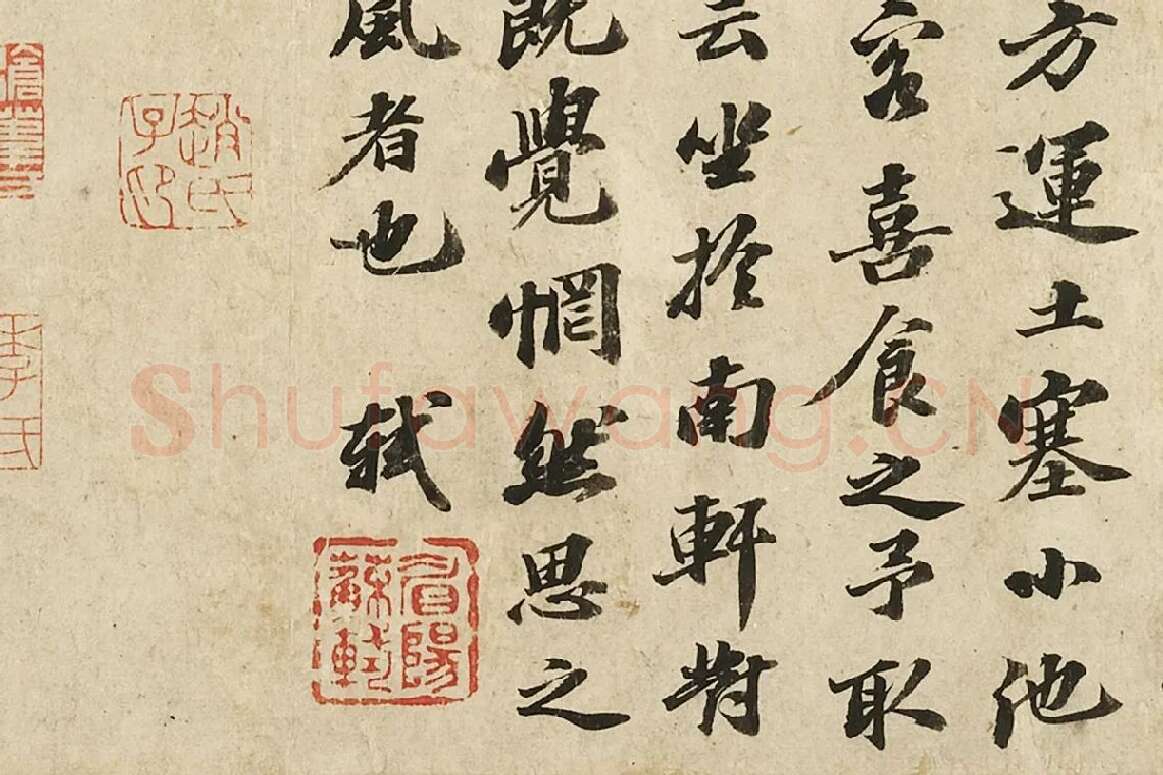 方運土塞小池
客喜食之予取
云坐於南軒對
既覺惘然思之
風者也
軾
眉陽蘇軾
趙氏子印
Shufawang.CN